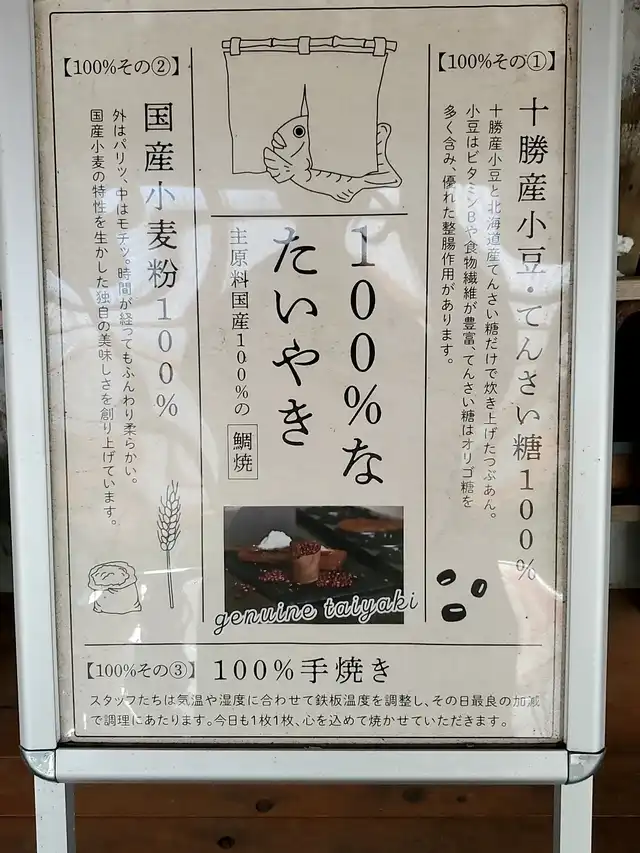 【100%その①】
十勝産小豆・てんさい糖100%
十勝産小豆と北海道産てんさい糖だけで炊き上げたつぶあん。
小豆はビタミンBや食物繊維が豊富、てんさい糖はオリゴ糖を
多く含み、優れた整腸作用があります。
100%な
たいやき
主原料国産100%の 鯛焼
genuine taiyaki
【100%その②】
国産小麦粉100%
外はパリッ、中はモチッ。時間が経ってもふんわり柔らかい。
国産小麦の特性を生かした独自の美味しさを創り上げています。
【100%その③】 100%手焼き
スタッフたちは気温や湿度に合わせて鉄板温度を調整し、その日最良の加減
で調理にあたります。今日も1枚1枚、心を込めて焼かせていただきます。